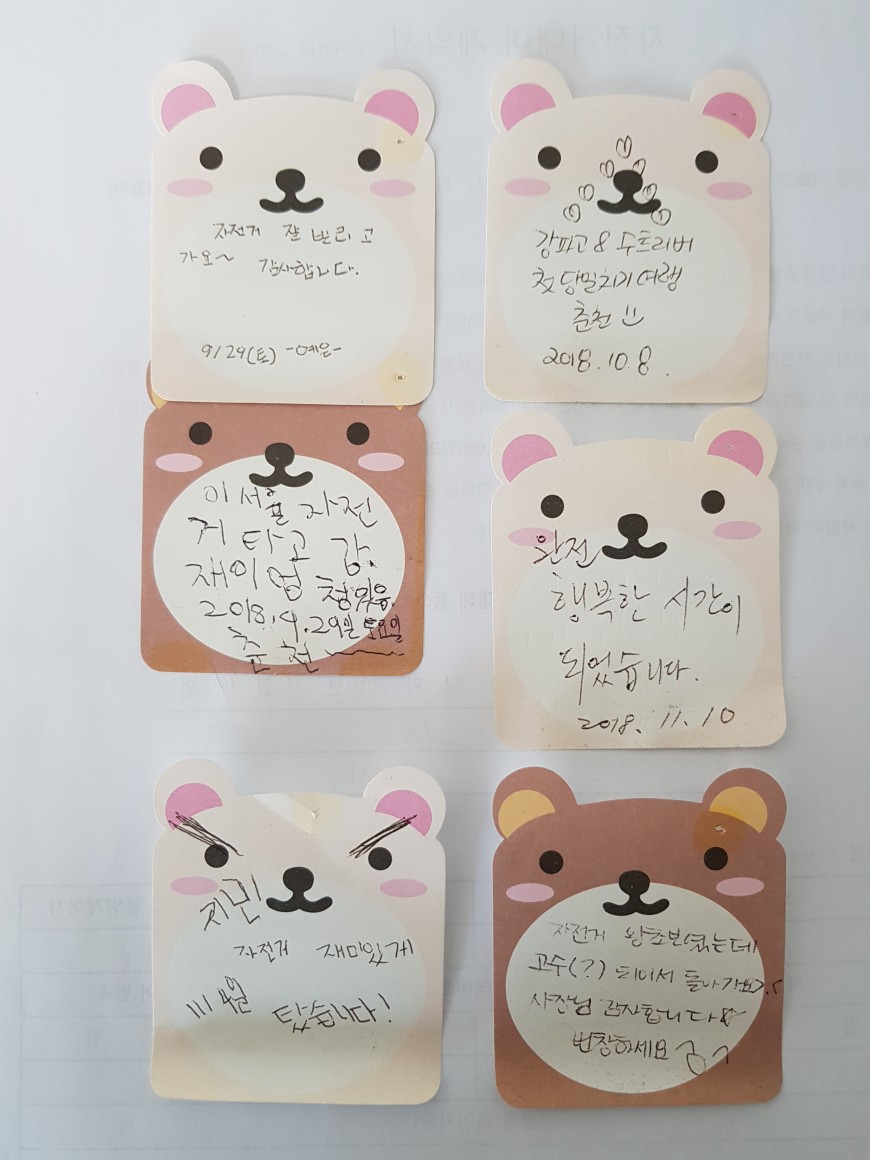 자전거 잘 빌리고
가요~ 감사합니다.
9/29(토) -예은-
강파고 & 수트리버
첫 당일치기 여행
춘천
2018.10.8.
이서율 자전
거 타고 감.
재미 업청있음.
2018.9.29일 토요일
춘천
완전
행복한 시간이
되었습니다.
2018. 11. 10
지민
자전거 재미있게
탔습니다!
자전거 왕초보였는데
고수(?) 되어서 돌아가요?.
사장님 감사합니다
번창하세요